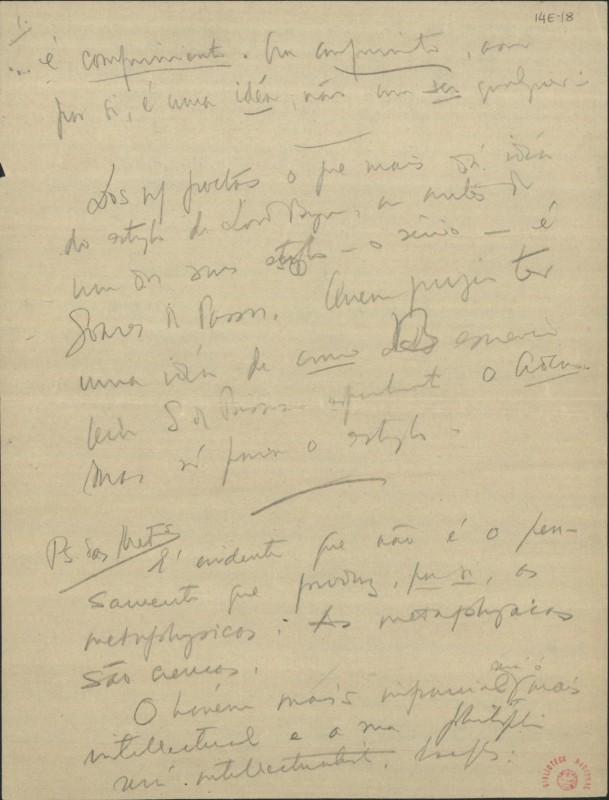 1.
14E-18
... é comprimento. Um comprimento, como
por si, é uma idéa, não um ser qualquer.
Dos poetas o que mais dá idéa
do estylo de Lord Byron, ou antes de
um dos seus estylos — o sério — é
Soares de Passos. Quem quizer ter
uma idéa de como escrevia
leia S. de Passos
Mas só para o estylo.
Ps. das Metas
É evidente que não é o pen-
samento que produz, per si, as
metaphysicas: As metaphysicas
são crenças.
O homem mais imparcial será o mais
intellectual e a sua
será intellectualist.
BIBLIOTECA NACIONAL